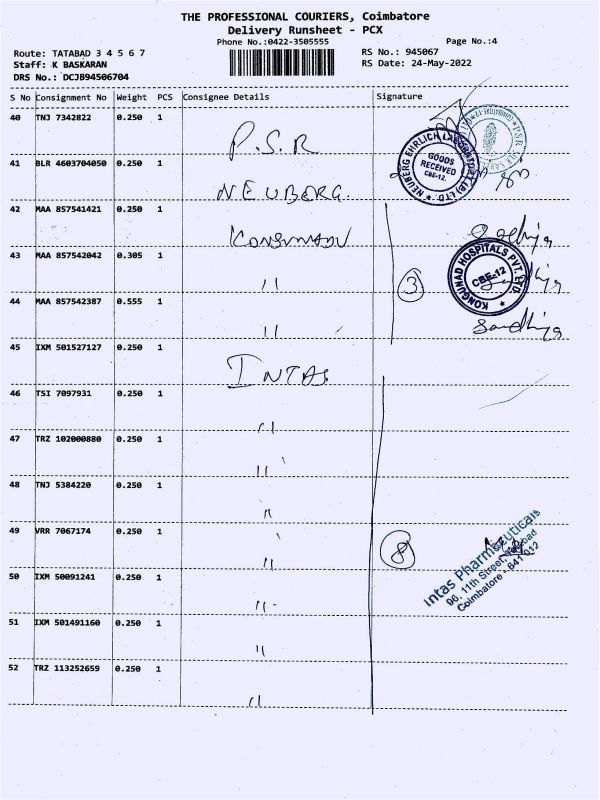 THE PROFESSIONAL COURIERS, Coimbatore
Delivery Runsheet - PCX
Phone No.:0422-3505555
Page No.:4
Route: TATABAD 3 4 5 6 7
RS No.: 945067
Staff: K BASKARAN
RS Date: 24-May-2022
DRS No.: DCJB94506704
S No Consignment No Weight PCS Consignee Details Signature
40 TNJ 7342822 0.250 1
P.S.R
NEUBERG EHRLICH LABORATORY (P) LTD.
GOODS
RECEIVED
CBE-12.
41 BLR 4603704050 0.250 1
NEUBERG
42 MAA 857541421 0.250 1
Sandhiya
43 MAA 857542042 0.305 1
"
3
KONGUNAD HOSPITALS PVT. LTD.
CBE-12
44 MAA 857542387 0.555 1
"
Sandhiya
45 IXM 501527127 0.250 1
INTAS
46 TSI 7097931 0.250 1
"
47 TRZ 102000880 0.250 1
"
48 TNJ 5384220 0.250 1
"
49 VRR 7067174 0.250 1
"
8
Intas Pharmaceuticals
96, 11th Street, Tatabad
Coimbatore - 641 012
50 IXM 50091241 0.250 1
"
51 IXM 501491160 0.250 1
"
52 TRZ 113252659 0.250 1
"